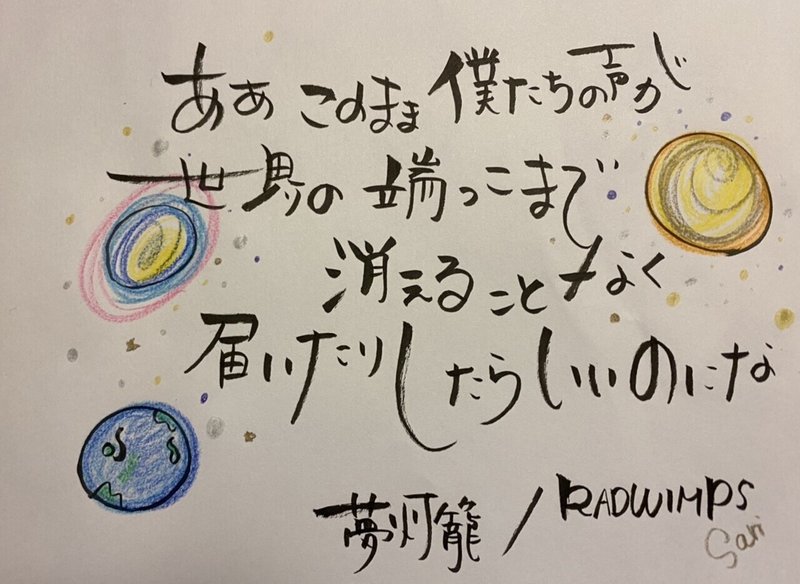 ああ このまま 僕たちの声が
世界の端っこまで
消えることなく
届いたりしたらいいのにな
夢灯籠/RADWIMPS
Sari